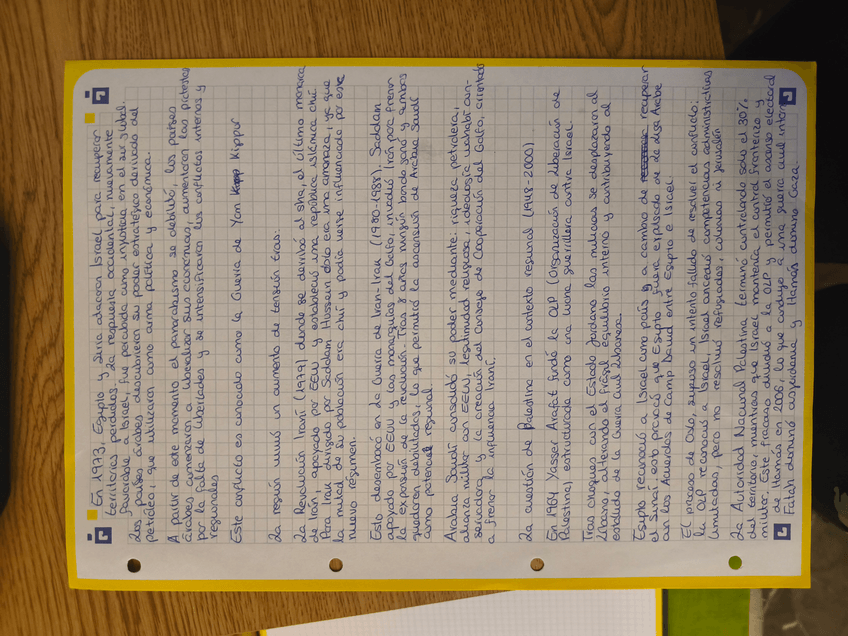 En 1973, Egipto y Siria atacaron Israel para recuperar
territorios perdidos. La respuesta occidental, nuevamente
favorable a Israel, fue percibida como injusticia en el sur global.
Los países árabes descubrieron su poder estratégico derivado del
petróleo, que utilizaron como arma política y económica.
A partir de este momento el panarabismo se debilitó, los países
árabes comenzaron a liberalizar sus economías, aumentaron las protestas
por la falta de libertades y se intensificaron los conflictos internos y
regionales
Este conflicto es conocido como la Guerra de Yom Kippur
La región vivió un aumento de tensión tras:
La Revolución Iraní (1979) donde se derribó al sha, el último monarca
de Irán, apoyado por EEUU y estableció una república islámica chií
Para Irak dirigido por Saddam Hussein esto era una amenaza, ya que
la mitad de su población era chií y podía verse influenciada por este
nuevo régimen.
Esto desembocó en la Guerra de Iran-Irak (1980-1988). Saddam
apoyado por EEUU y las monarquías del Golfo, invadió Irán para frenar
la expansión de la revolución. Tras 8 años ningún bando ganó y ambos
quedaron debilitados, lo que permitió la ascensión de Arabia Saudí
como potencia regional.
Arabia Saudí consolidó su poder mediante: riqueza petrolera,
alianza militar con EEUU, legitimidad religiosa, ideología wahabí con-
servadora y la creación del Consejo de Cooperación del Golfo, orientado
a frenar la influencia iraní.
La cuestión de Palestina en el contexto regional (1948-2000)
En 1964 Yasser Arafat fundó la OLP (Organización de Liberación de
Palestina) estructurada como una lucha guerrillera contra Israel.
Tras choques con el Estado jordano las milicias se desplazaron al
Líbano, alterando el frágil equilibrio interno y contribuyendo al
estallido de la Guerra civil libanesa.
Egipto reconoció a Israel como país y a cambio de recuperar
el Sinaí, esto provocó que Egipto fuera expulsado de la Liga Árabe
con los Acuerdos de Camp David entre Egipto e Israel.
El proceso de Oslo, supuso un intento fallido de resolver el conflicto:
la OLP reconoció a Israel, Israel concedió competencias administrativas
limitadas, pero no resolvió refugiados, colonias ni Jerusalén
La Autoridad Nacional Palestina terminó controlando solo el 30%
del territorio, mientras que Israel mantenía el control fronterizo y
militar. Este fracaso dividió a la OLP y permitió el ascenso electoral
de Hamás en 2006, lo que condujo a una guerra civil interna
Fatah dominó Cisjordania y Hamás dominó Gaza.